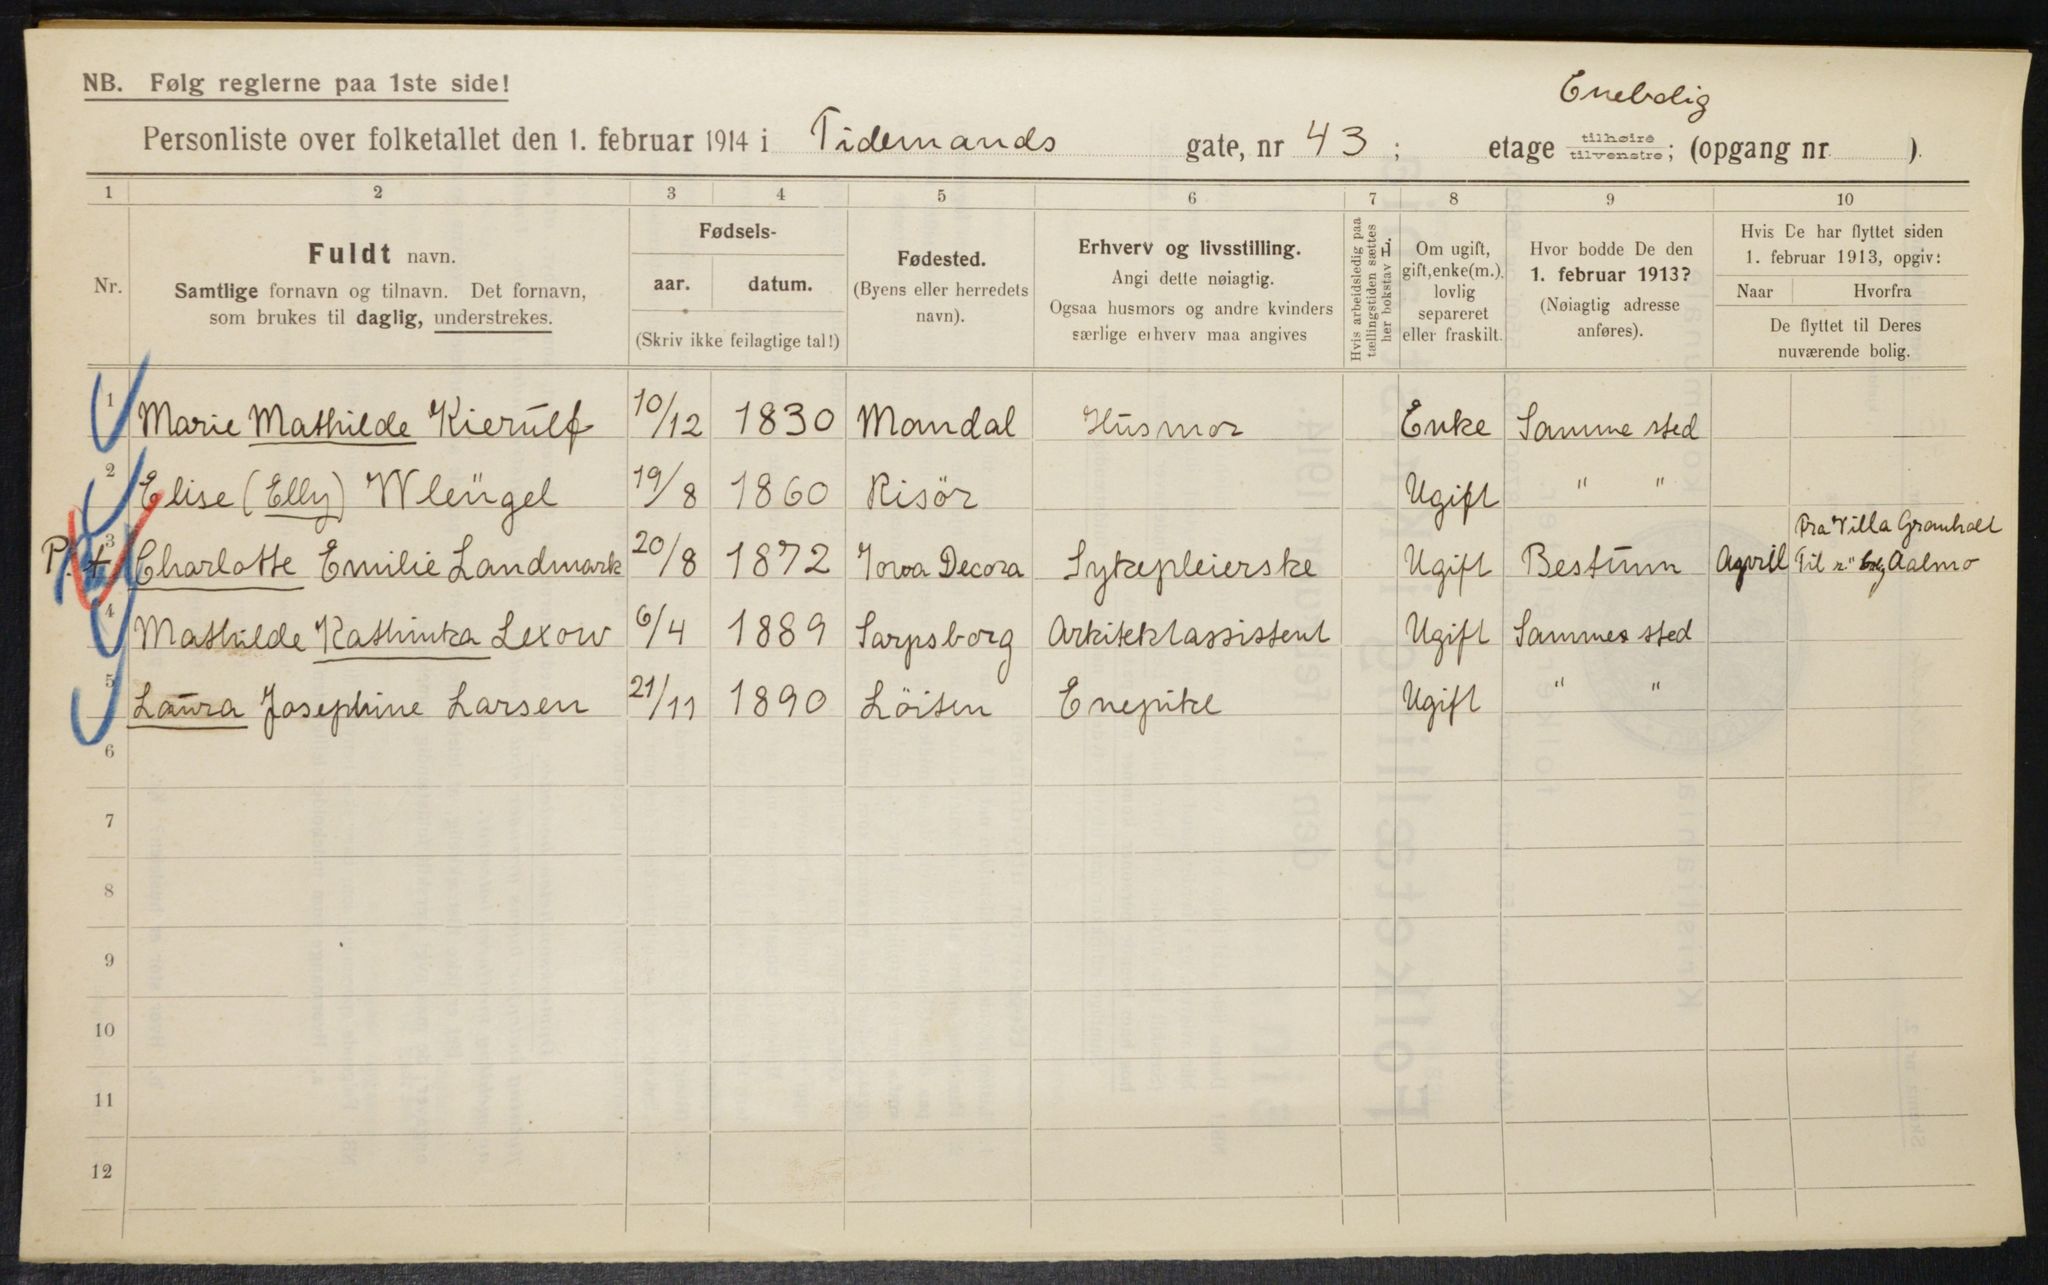 NB. Følg reglerne paa 1ste side!
Enebolig
Personliste over folketallet den 1. februar 1914 i Tidemands gate, nr 43; etage tilhøire tilvenstre; (opgang nr ).
1 2 3 4 5 6 7 8 9 10
Nr.
Fuldt navn.
Samtlige fornavn og tilnavn. Det fornavn,
som brukes til daglig, understrekes.
Fødsels-
aar. datum.
(Skriv ikke feilagtige tal!)
Fødested.
(Byens eller herredets
navn).
Erhverv og livsstilling.
Angi dette nøiagtig.
Ogsaa husmors og andre kvinders
særlige erhverv maa angives
Hvis arbeidsledig paa
tællingstiden sættes
her bokstav L.
Om ugift,
gift, enke(m.).
lovlig
separeret
eller fraskilt.
Hvor bodde De den
1. februar 1913?
(Nøiagtig adresse
anføres).
Hvis De har flyttet siden
1. februar 1913, opgiv:
Naar Hvorfra
De flyttet til Deres
nuværende bolig.
1 Marie Mathilde Kierülf 10/12 1830 Mandal Hüsmor Enke Samme sted
2 Elise (Elly) Wleügel 19/8 1860 Risör Ugift " "
Fra Villa Granholt
P. + 3 Charlotte Emilie Landmark 20/8 1872 Iowa Decora Sykepleierske Ugift Bestum April Til Aalmo
4 Mathilde Kathinka Lexow 6/4 1889 Sarpsborg Arkitektassistent Ugift Sammes sted
5 Laura Josephine Larsen 21/11 1890 Löiten Enepike Ugift " "
6
7
8
9
10
11
12